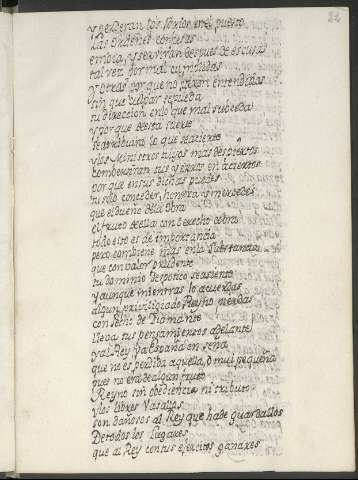 y perderan los sortos en el puerto
Las ordenes confusas
embia, y serviran despues de escusas
tal vez por mal cumplidas
y otras por que no fueron entendidas
sin que culpar se pueda
tu direccion en lo que mal suceda
y por que de esta suerte
se atribuira lo que se acierte
y los Ministros tuyos mas despiertos
compensaran sus yerros en aciertos
por que en sus dichas puedes
tu solo conceder, honrras y mercedes
que el dueño de la obra
el fruto de ella con derecho cobra
todo esto es de importancia
pero combiene mas en la substancia
que con valor prudente
tu dominio despotico se asiente
y aunque mientras lo acuerdas
algun privilegiado Reyno pierdas
con pecho de Diamante
lleva tus pensamientos adelante
y al Rey y a España enseña
que no es perdida aquella, o mui pequeña
pues no era de algun fruto
Reyno sin obediencia ni tributo
y los libres Vasallos
son dañosos al Rey que habe guardallos
De todos los Lugares
que al Rey con tus exercitos ganares